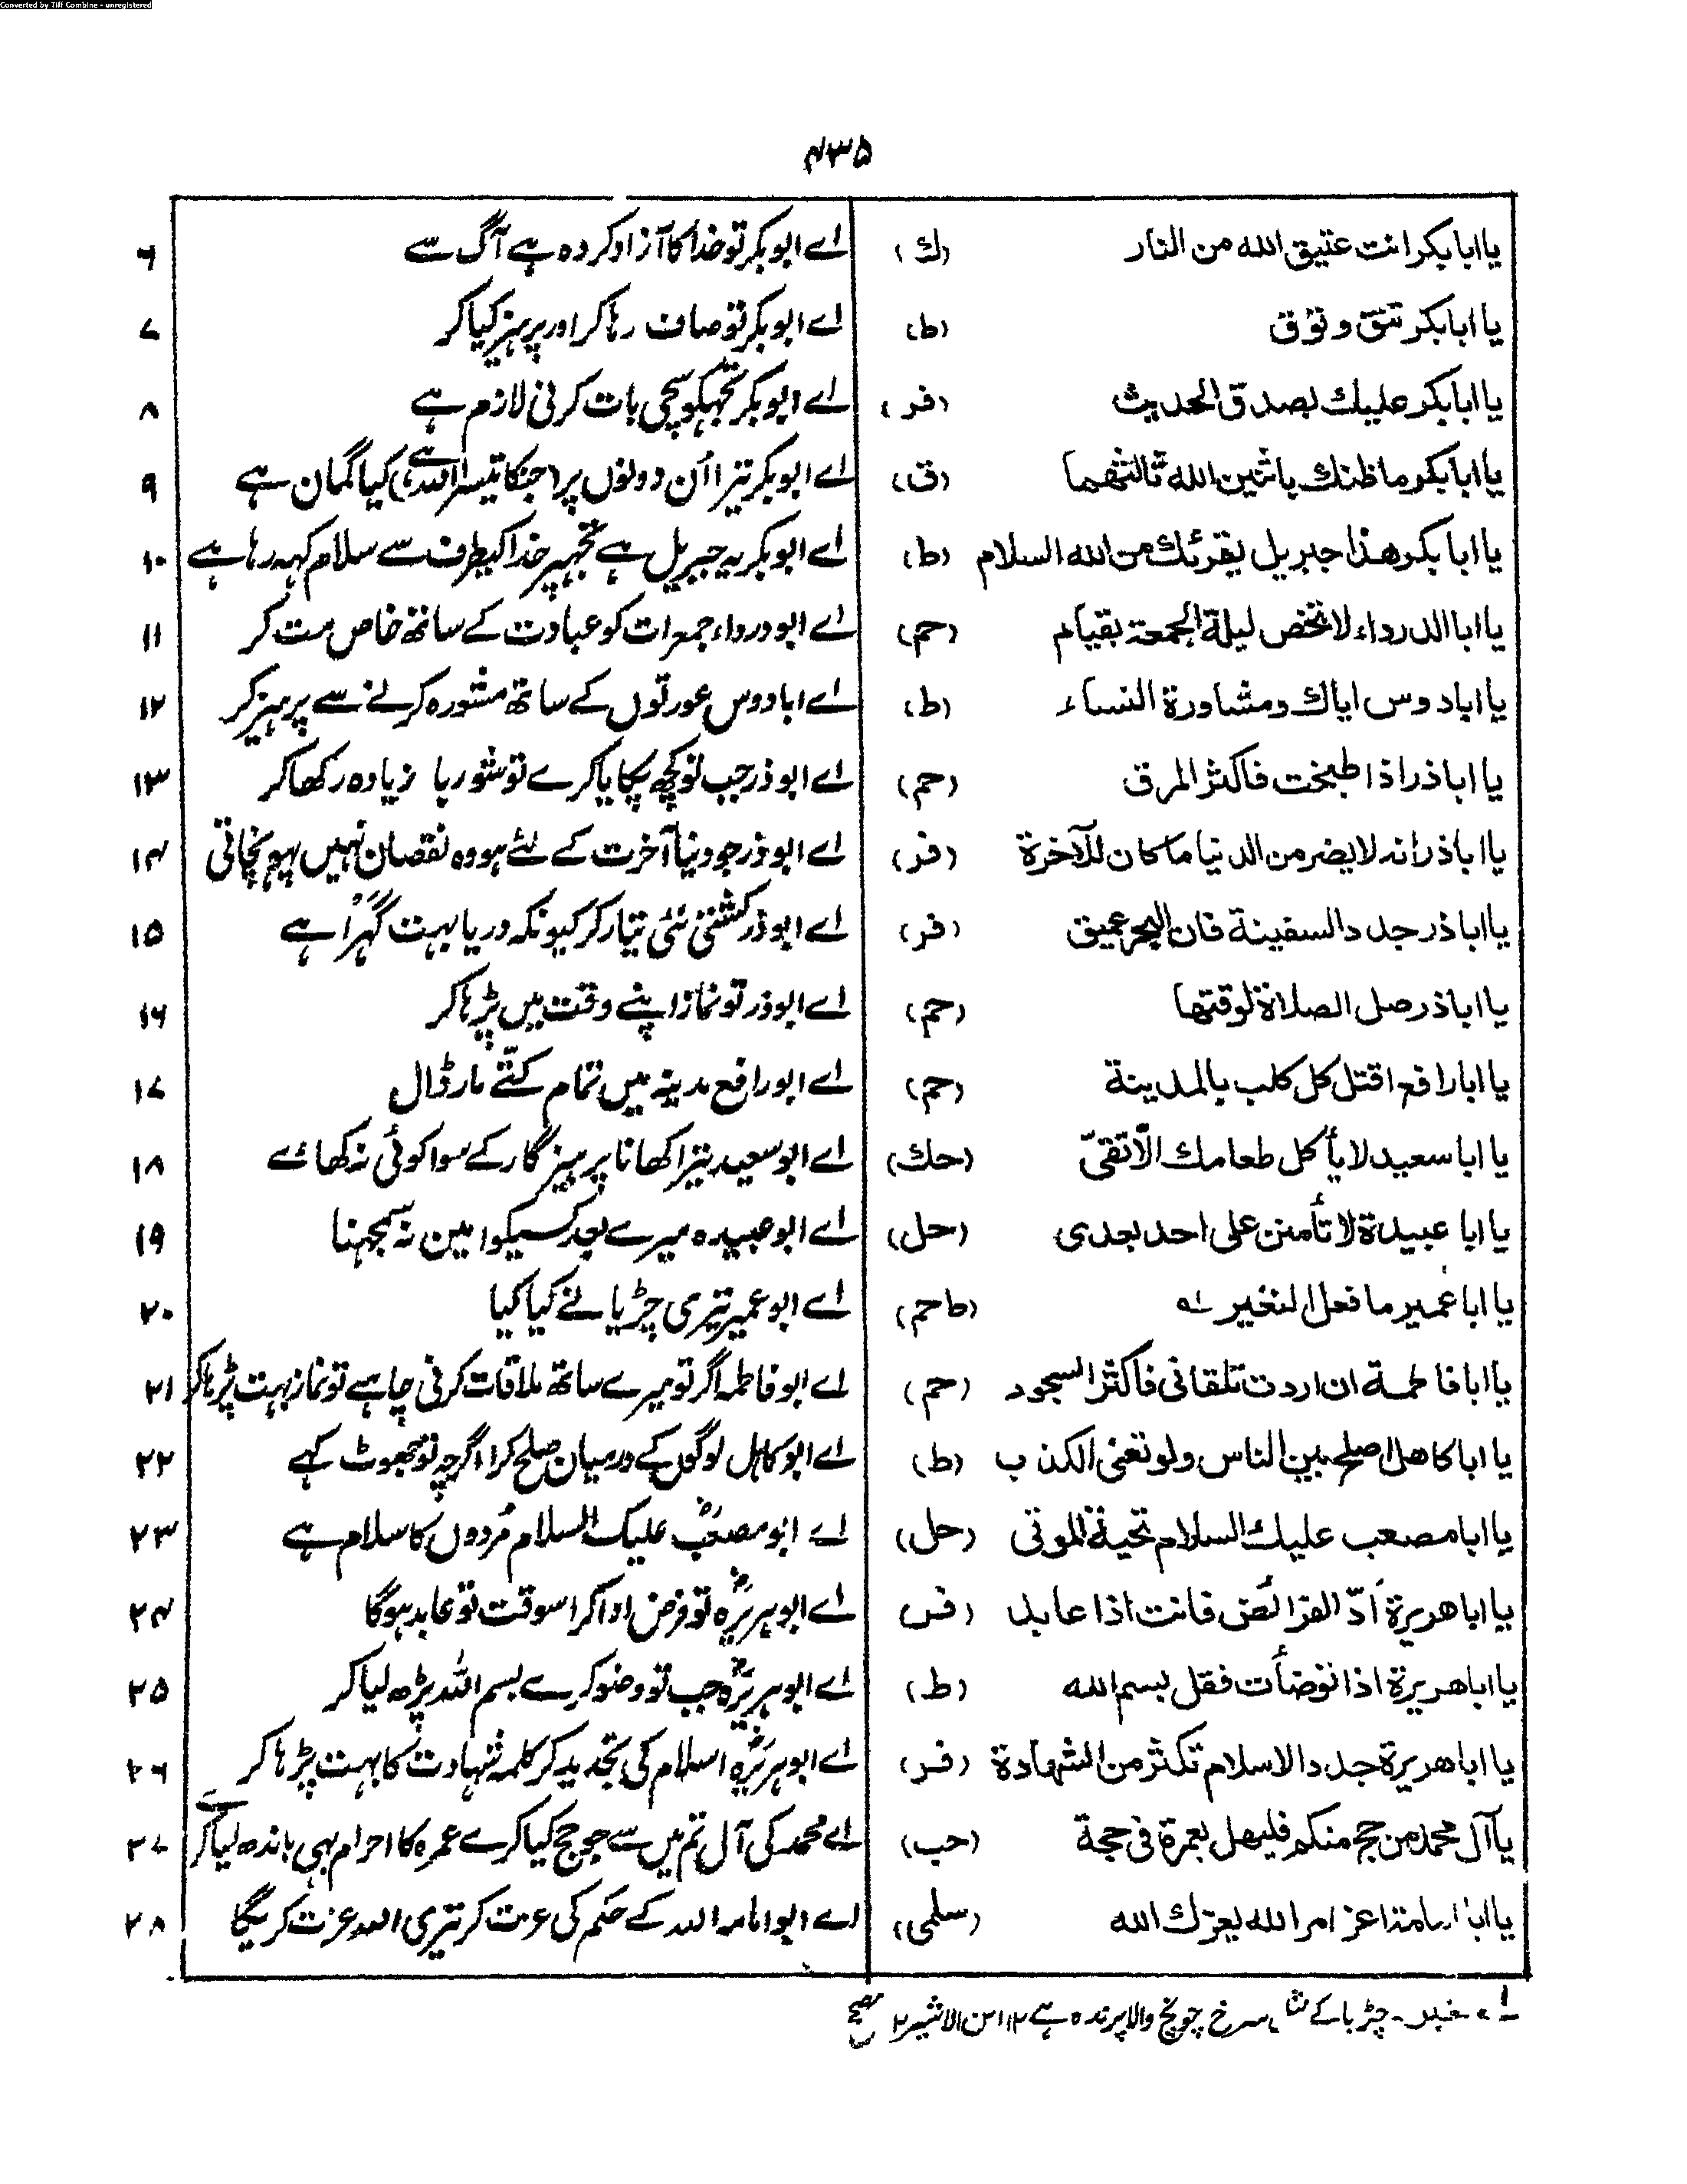 Converted by Tiff Combine - unregistered
۴۳۵
یا ابا بکر انت عتیق الله من النار (ك) اے ابوبکر تو خدا کا آزاد کردہ ہے آگ سے ۶
یا ابا بکر تنق و توق (ط) اے ابوبکر تو صاف رہا کر اور پرہیز کیا کر ۷
یا ابا بکر علیك بصدق الحدیث (فر) اے ابوبکر تجہکو سچی بات کرنی لازم ہے ۸
یا ابا بکر ما ظنك باثنین الله ثالثهما (ق) اے ابوبکر تیرا اُن دونوں پر (جنکا تیسرا اللہ ہے) کیا گمان ہے ۹
یا ابا بکر هذا جبریل یقرئك من الله السلام (ط) اے ابوبکر یہ جبریل ہے تجہپر خدا کیطرف سے سلام کہہ رہا ہے ۱۰
یا ابا الدرداء لا تخص لیلة الجمعة بقیام (حم) اے ابودرداء جمعرات کو عبادت کے ساتھ خاص مت کر ۱۱
یا ابا دوس ایاك ومشاورة النساء (ط) اے ابا دوس عورتوں کے ساتھ مشورہ کرنے سے پرہیز کر ۱۲
یا ابا ذر اذا طبخت فاکثر المرق (حم) اے ابوذر جب تو کچھ پکایا کرے تو شوربا زیادہ رکھا کر ۱۳
یا ابا ذر انه لا یضر من الدنیا ما کان للآخرة (فر) اے ابوذر جو دنیا آخرت کے لئے ہو وہ نقصان نہیں پہونچاتی ۱۴
یا ابا ذر جدد السفینة فان البحر عمیق (فر) اے ابوذر کشتی نئی تیار کر کیونکہ دریا بہت گہرا ہے ۱۵
یا ابا ذر صل الصلاة لوقتها (حم) اے ابوذر تو نماز اپنے وقت میں پڑہا کر ۱۶
یا ابا رافع اقتل کل کلب بالمدینة (حم) اے ابورافع مدینہ میں تمام کتّے مار ڈال ۱۷
یا ابا سعید لا یأکل طعامك الّا تقیّ (حك) اے ابوسعید تیرا کھانا پرہیزگار کے سوا کوئی نہ کھائے ۱۸
یا ابا عبیدة لا تأمنن علی احد بعدی (حل) اے ابوعبیدہ میرے بعد کسیکو امین نہ سمجہنا ۱۹
یا ابا عمیر ما فعل النغیر له (ط حم) اے ابوعمیر تیری چڑیا نے کیا کیا ۲۰
یا ابا فاطمة ان اردت تلقانی فاکثر السجود (حم) اے ابوفاطمہ اگر تو میرے ساتھ ملاقات کرنی چاہے تو نماز بہت پڑہا کر ۲۱
یا ابا کاهل اصلح بین الناس ولو تعنی الکذب (ط) اے ابوکاہل لوگوں کے درمیان صلح کرا اگرچہ تو جھوٹ کہے ۲۲
یا ابا مصعب علیك السلام تحیة الموتی (حل) اے ابومصعبؓ علیک السلام مُردوں کا سلام ہے ۲۳
یا ابا هریرة أدّ الفرائض فانت اذا عابد (فر) اے ابوہریرہؓ تو فرض ادا کر اسوقت تو عابد ہوگا ۲۴
یا ابا هریرة اذا توضأت فقل بسم الله (ط) اے ابوہریرہؓ جب تو وضو کرے بسم اللہ پڑھ لیا کر ۲۵
یا ابا هریرة جدد الاسلام تکثر من الشهادة (فر) اے ابوہریرہؓ اسلام کی تجدید کر کلمہ شہادت کا بہت پڑہا کر ۲۶
یا آل محمد من حج منکم فلیهل بعمرة فی حجة (حب) اے محمد کی آل تم میں سے جو حج کیا کرے عمرہ کا احرام بہی باندھ لیا کرے ۲۷
یا ابا امامة اعز امر الله یعزك الله (سلمی) اے ابوامامہ اللہ کے حکم کی عزت کر تیری اللہ عزت کریگا ۲۸
چڑیا کے سرخ چونچ والا پرندہ ہے ۱۲ ابن الاثیر ۱۲